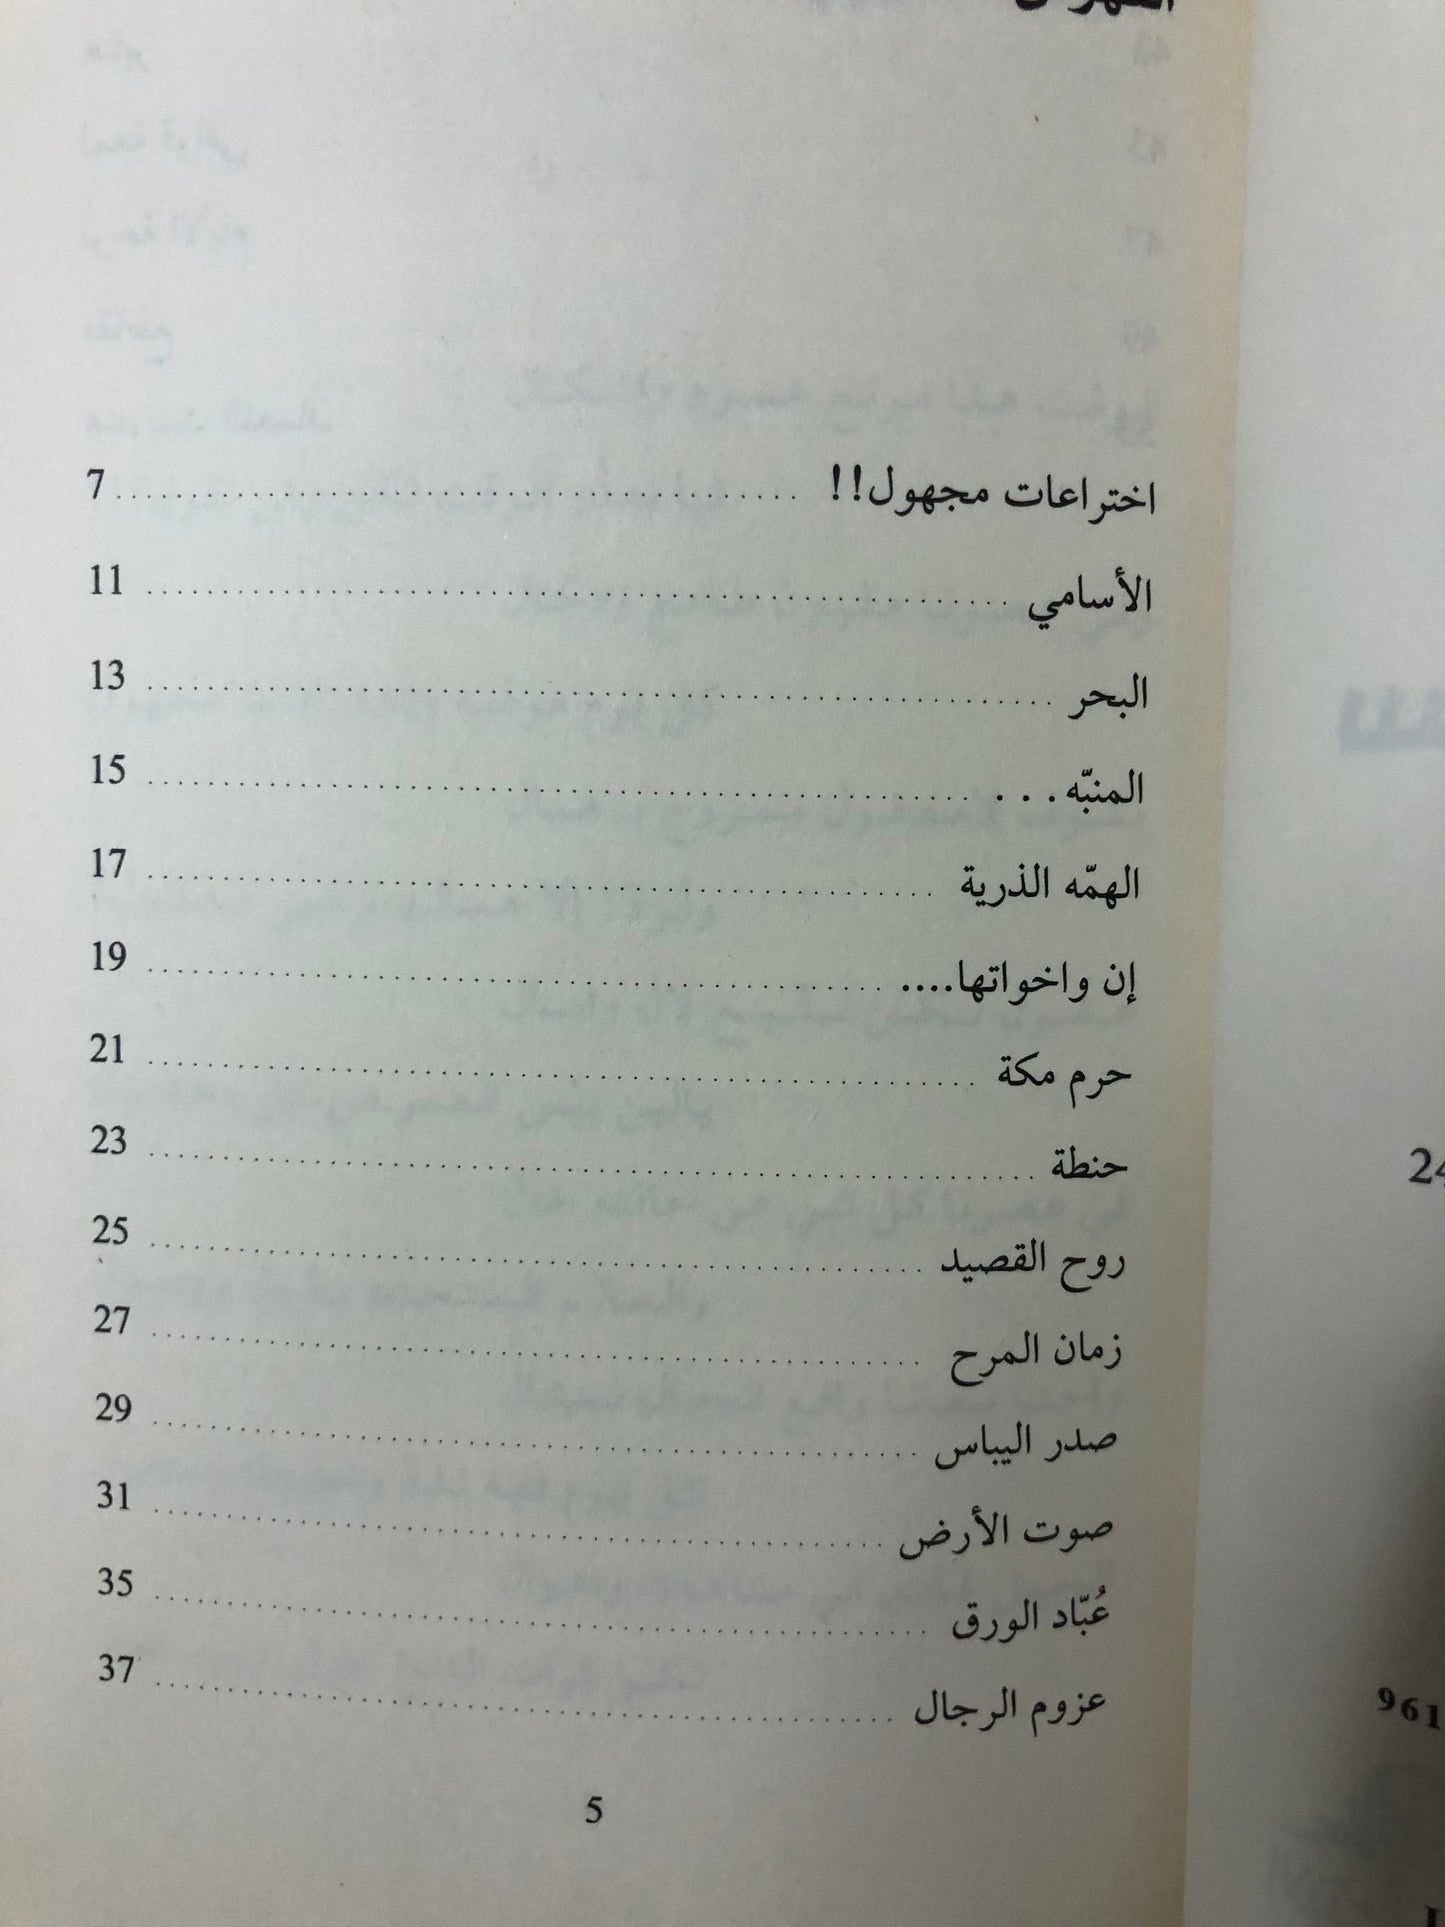 الفهرس
اختراعات مجهول!! 7
الأسامي 11
البحر 13
المنبّه... 15
الهمّه الذرية 17
إن واخواتها.... 19
حرم مكة 21
حنطة 23
روح القصيد 25
زمان المرح 27
صدر اليباس 29
صوت الأرض 31
عُبّاد الورق 35
عزوم الرجال 37
5
24
961